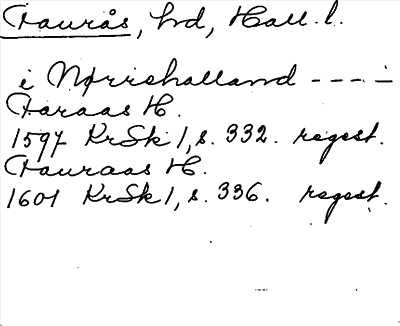 Faurås, hd, Hall. l.
i Nørrehalland - - - -
Faraas H.
1597 KrSk 1, s. 332. regest.
Fauraas H.
1601 KrSk 1, s. 336. regest.